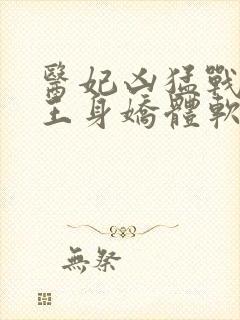 醫妃凶猛戰
王身嬌體軟
無祭